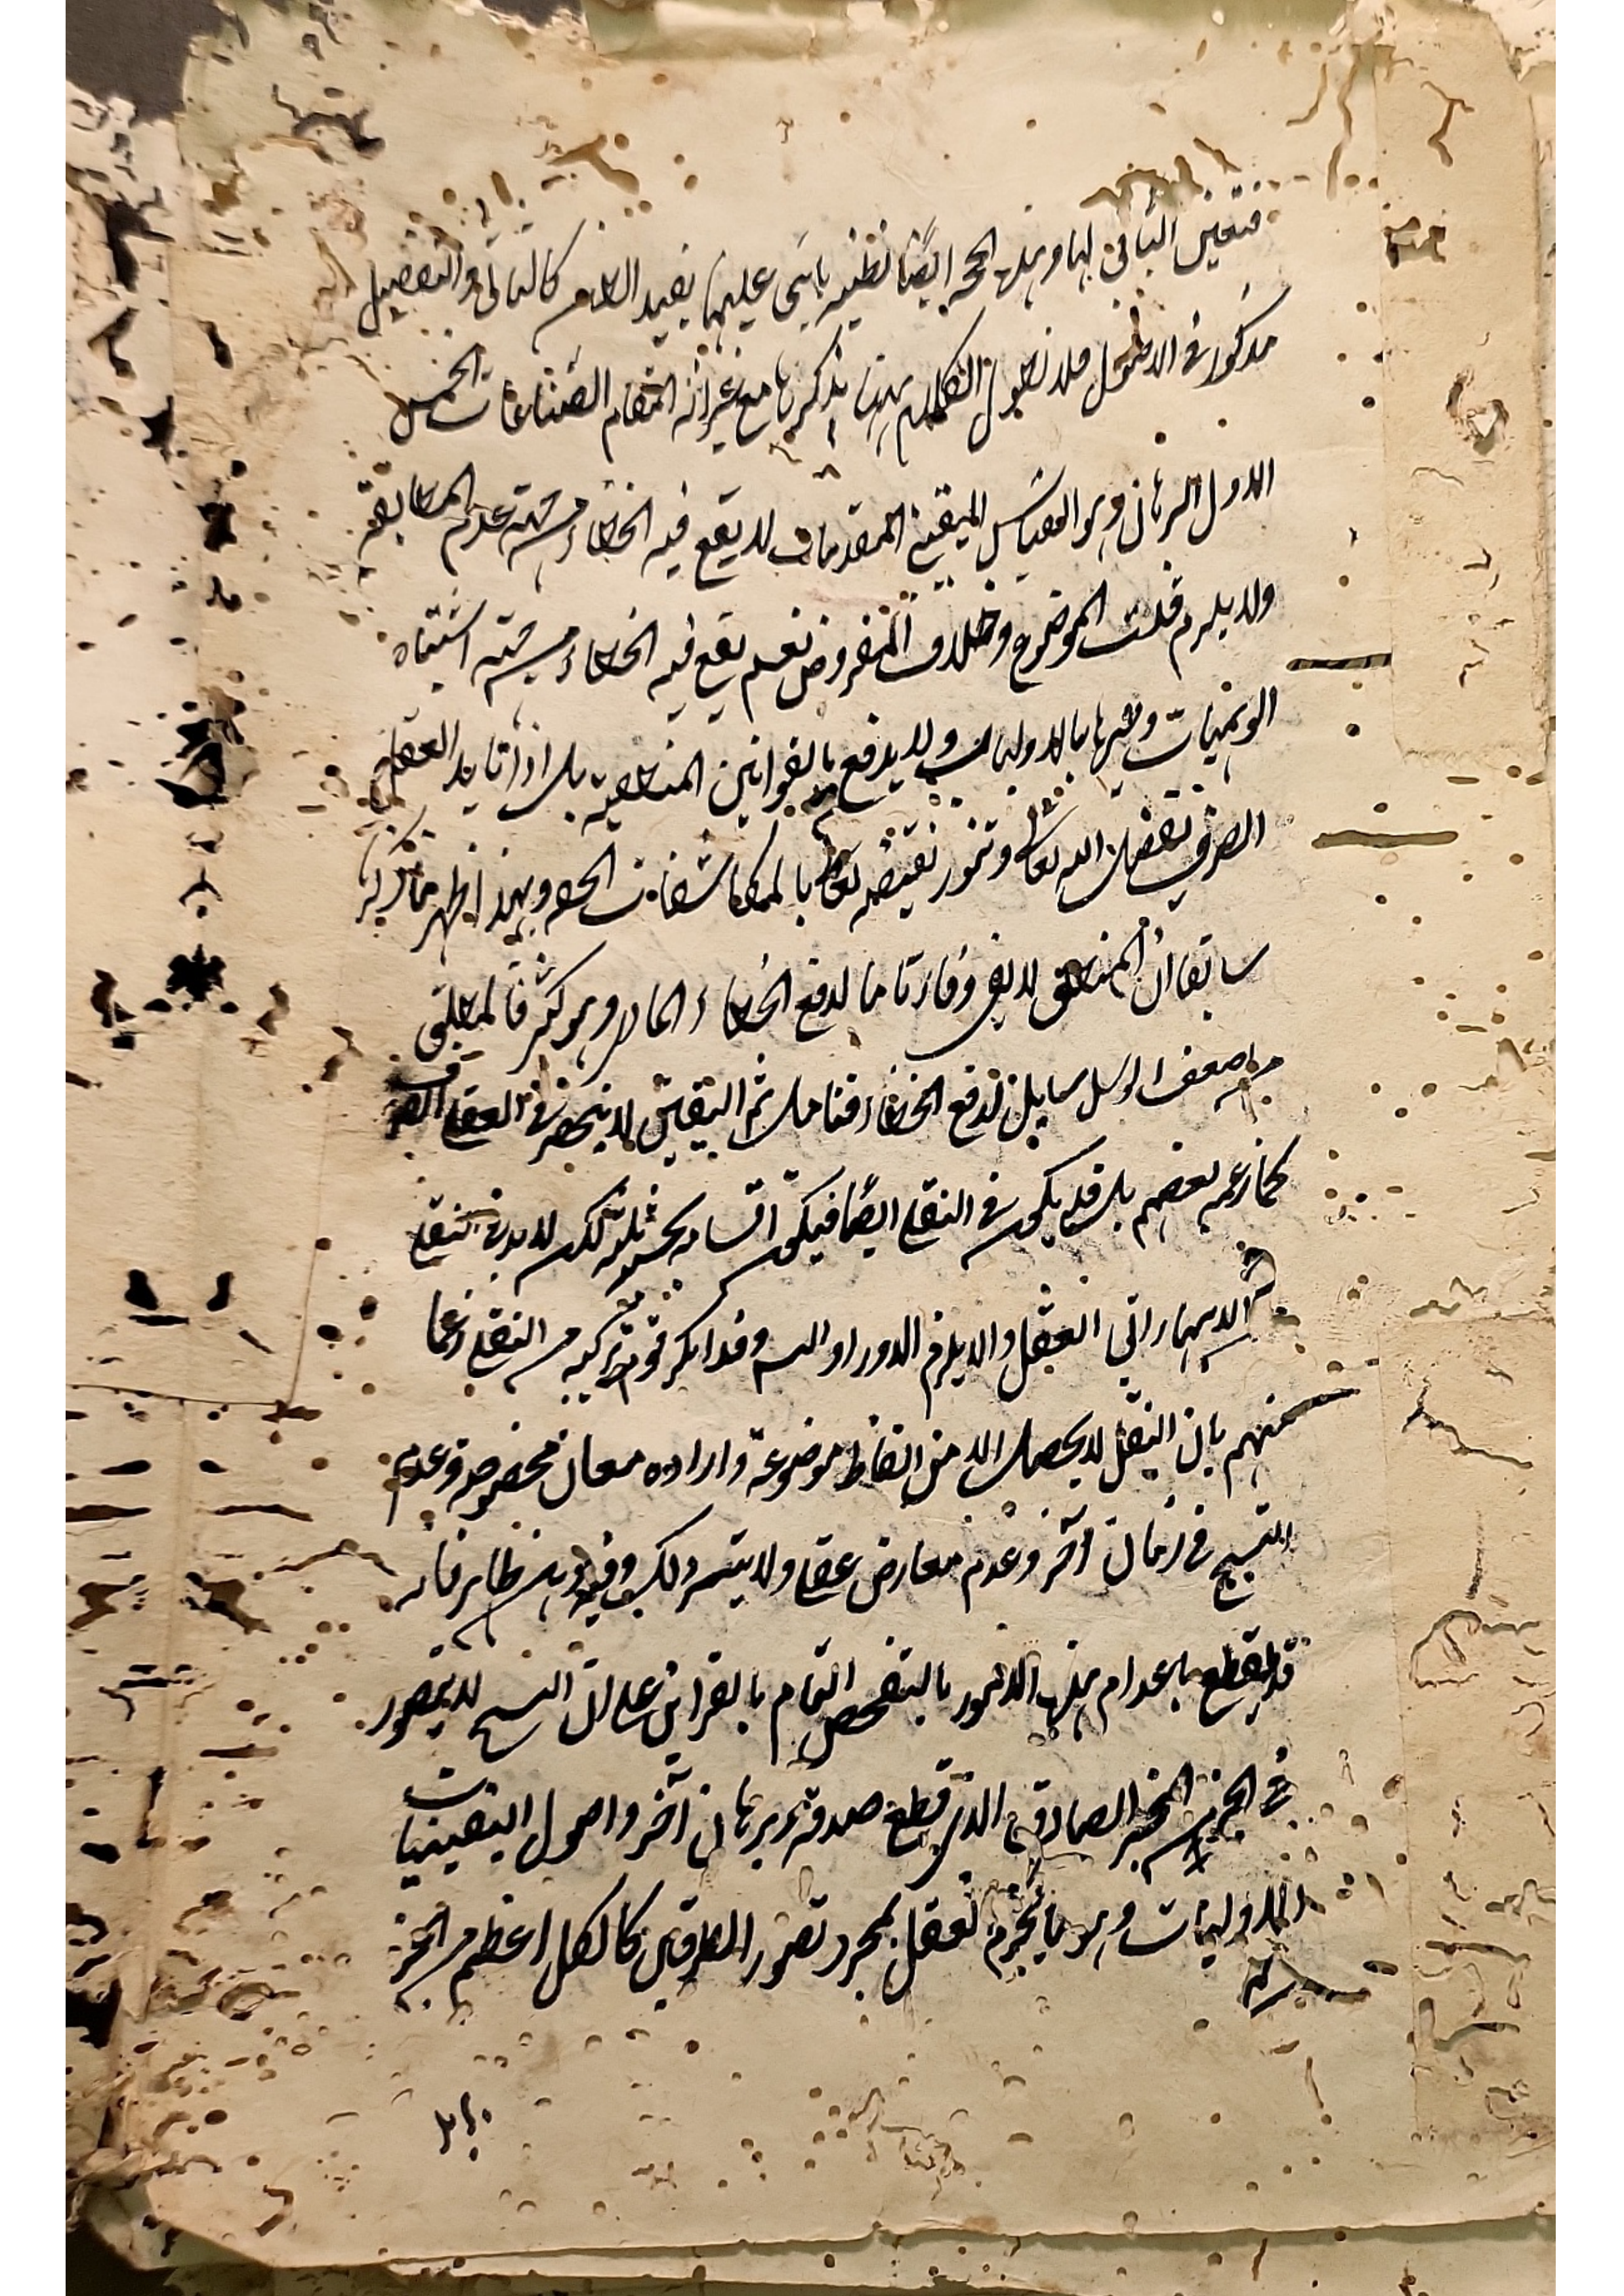 فتعين الباقي لها وبهذه الحجة ايضًا نظير ما بنى عليها يفيد الظن كالتالي والتفصيل
مذكور في الاصول فلا نطول الكلام ههنا بذكرها مع غرابة المقام الصناعات الخمس
الاول البرهان وهو القياس اليقيني المقدمات لا يقع فيه الخطاء من جهة عدم المطابقة
ولا يلزم قلت الموضوع وخلاف المفروض نعم يقع فيه الخطاء من جهة اشتباه
الوهميات وغيرها بالاوليات ولا يدفع بالقوانين المنطقية بل اذا تايد العقل
الصرف بفضل الله تعالى وتنور بفيضه تعالى بالمكاشفات الحقه وبهذا ظهر ما ذكرنا
سابقا ان المنطق لا يفي وفاء تاما لدفع الخطاء المادي وهو كثير فالمنطق
من اضعف الوسايل لدفع الخطاء فتامل ثم اليقين لا ينحصر في العقلي الصرف
كما زعمه بعضهم بل قد يكون في النقلي ايضًا فيكون اقسامه بحسبه ثلثة لكن لا بد في النقلي
من الانتهاء الى العقل والا يلزم الدور او التس وقد انكر قوم تركيبه من النقلي زعما
منهم بان النقل لا يحصل الا من الفاظ موضوعة وارادة معان مخصوصة وعدم
النسخ في زمان آخر وعدم معارض عقلي ولا يتيسر ذلك وفيه وهن ظاهر فانه
قد يقطع باعدام هذه الامور بالتفحص التام بالقرائن على ان النسخ لا يتصور
في الخبر من المخبر الصادق الذي قطع صدقه ببرهان آخر واصول اليقينيات
الاوليات وهو ما يجزم العقل بمجرد تصور الطرفين كالكل اعظم من الجزء